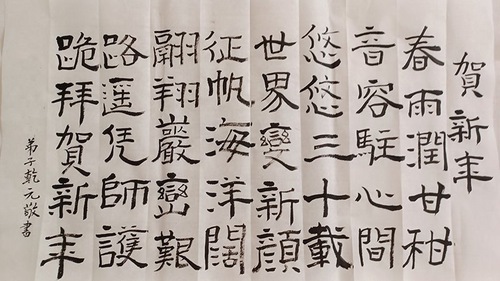 賀新年
春雨潤甘柑
音容駐心間
悠悠三十載
世界變新顏
征帆海洋闊
翩翔巖巒艱
路遥凭師護
跪拜賀新年
弟子乾元敬書